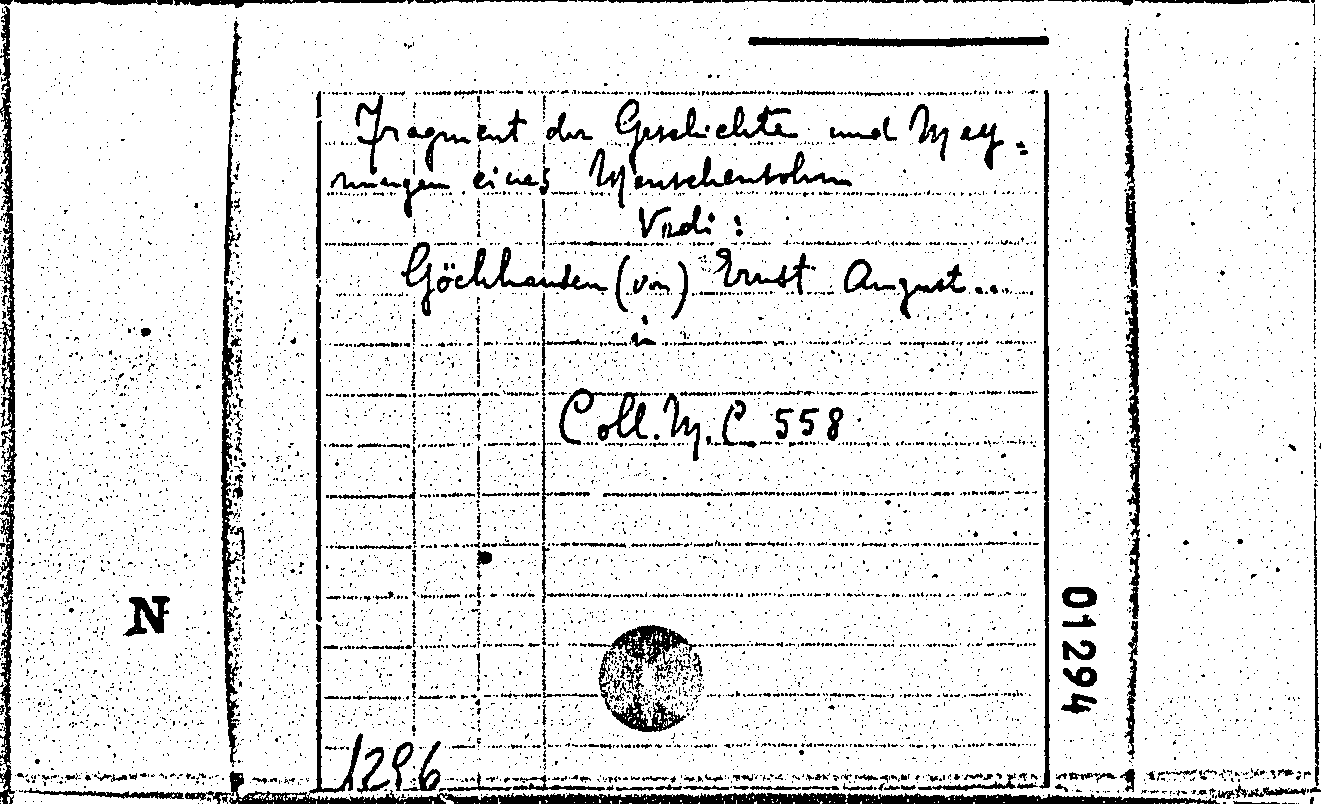 Fragment der Geschichte und Mey=
nungen eines Menschensohns
Vedi:
Göchhausen (von) Ernst August...
in
Coll. M. C. 558
N
01294
1296